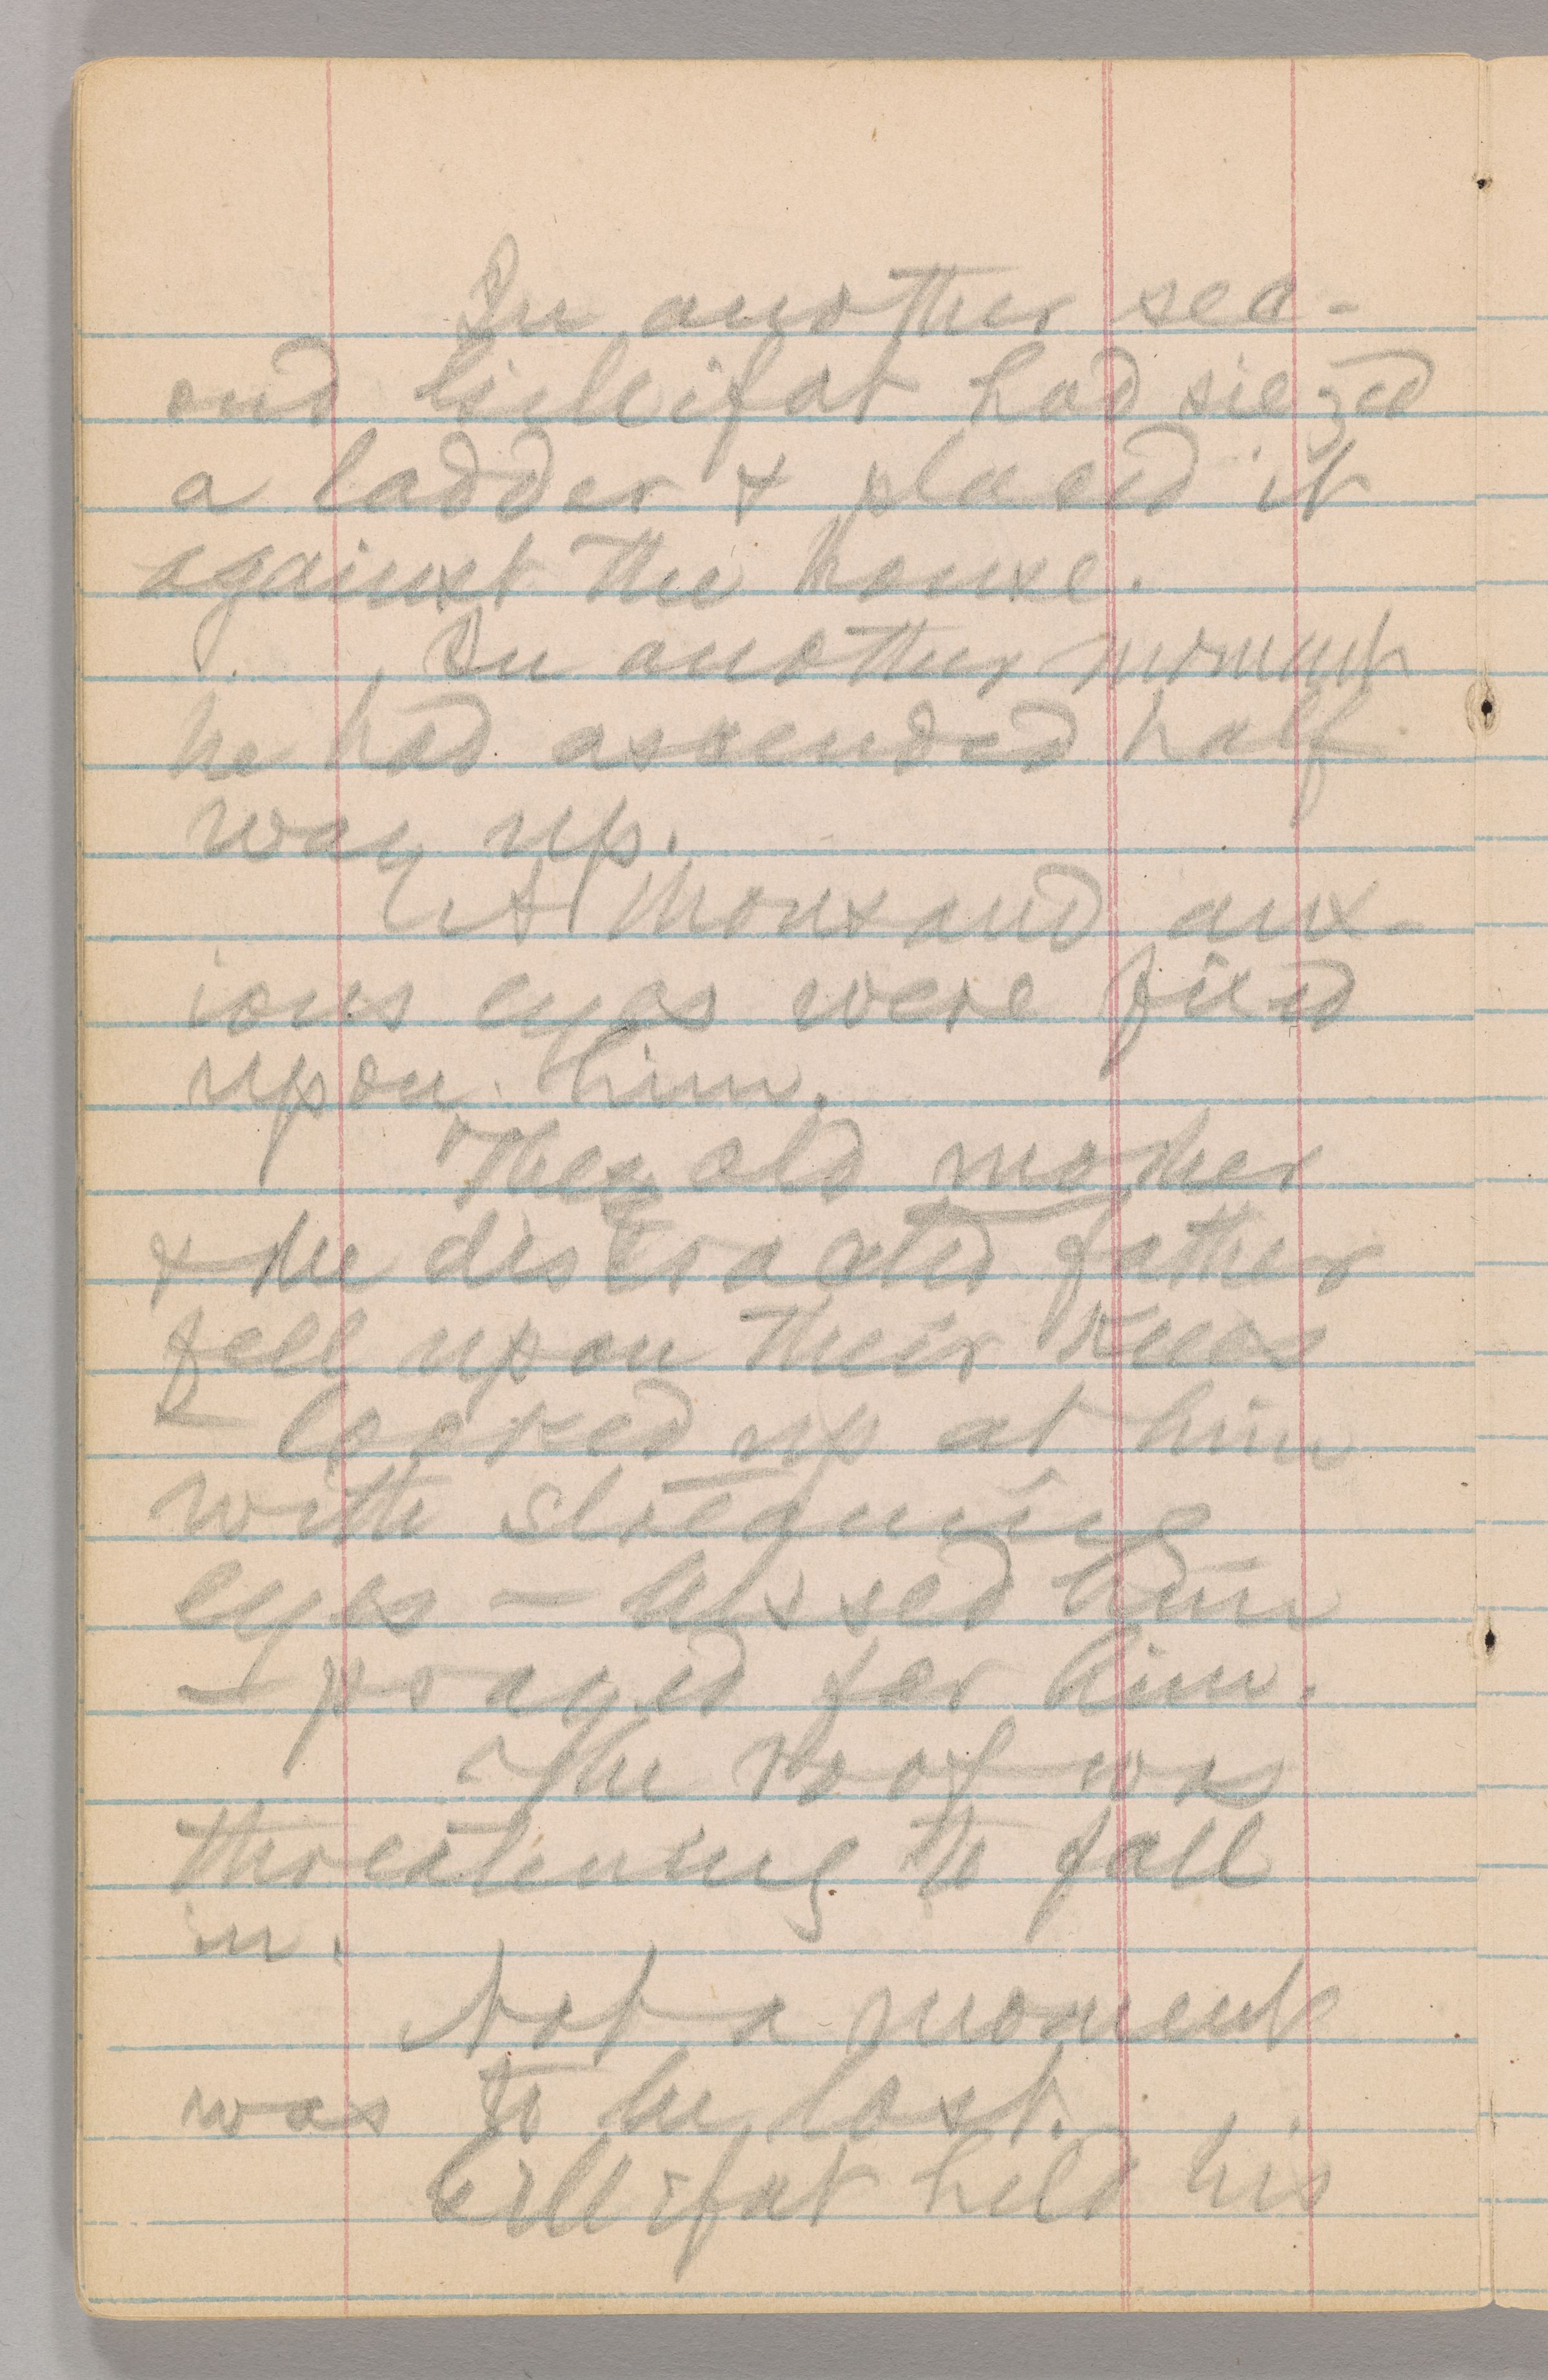 In another sec-
ond Gillifat had siezed
a ladder & placed it
against the house.
In another moment
he had ascended half
way up.
A thousand anx-
ious eyes were fixed
upon him.
The old mother
& the distracted father
fell upon their knees
& looked up at him
with streaming
eyes – blessed him
– prayed for him.
The roof was
threatening to fall
in.
Not a moment
was to be lost.
Gillifat held his